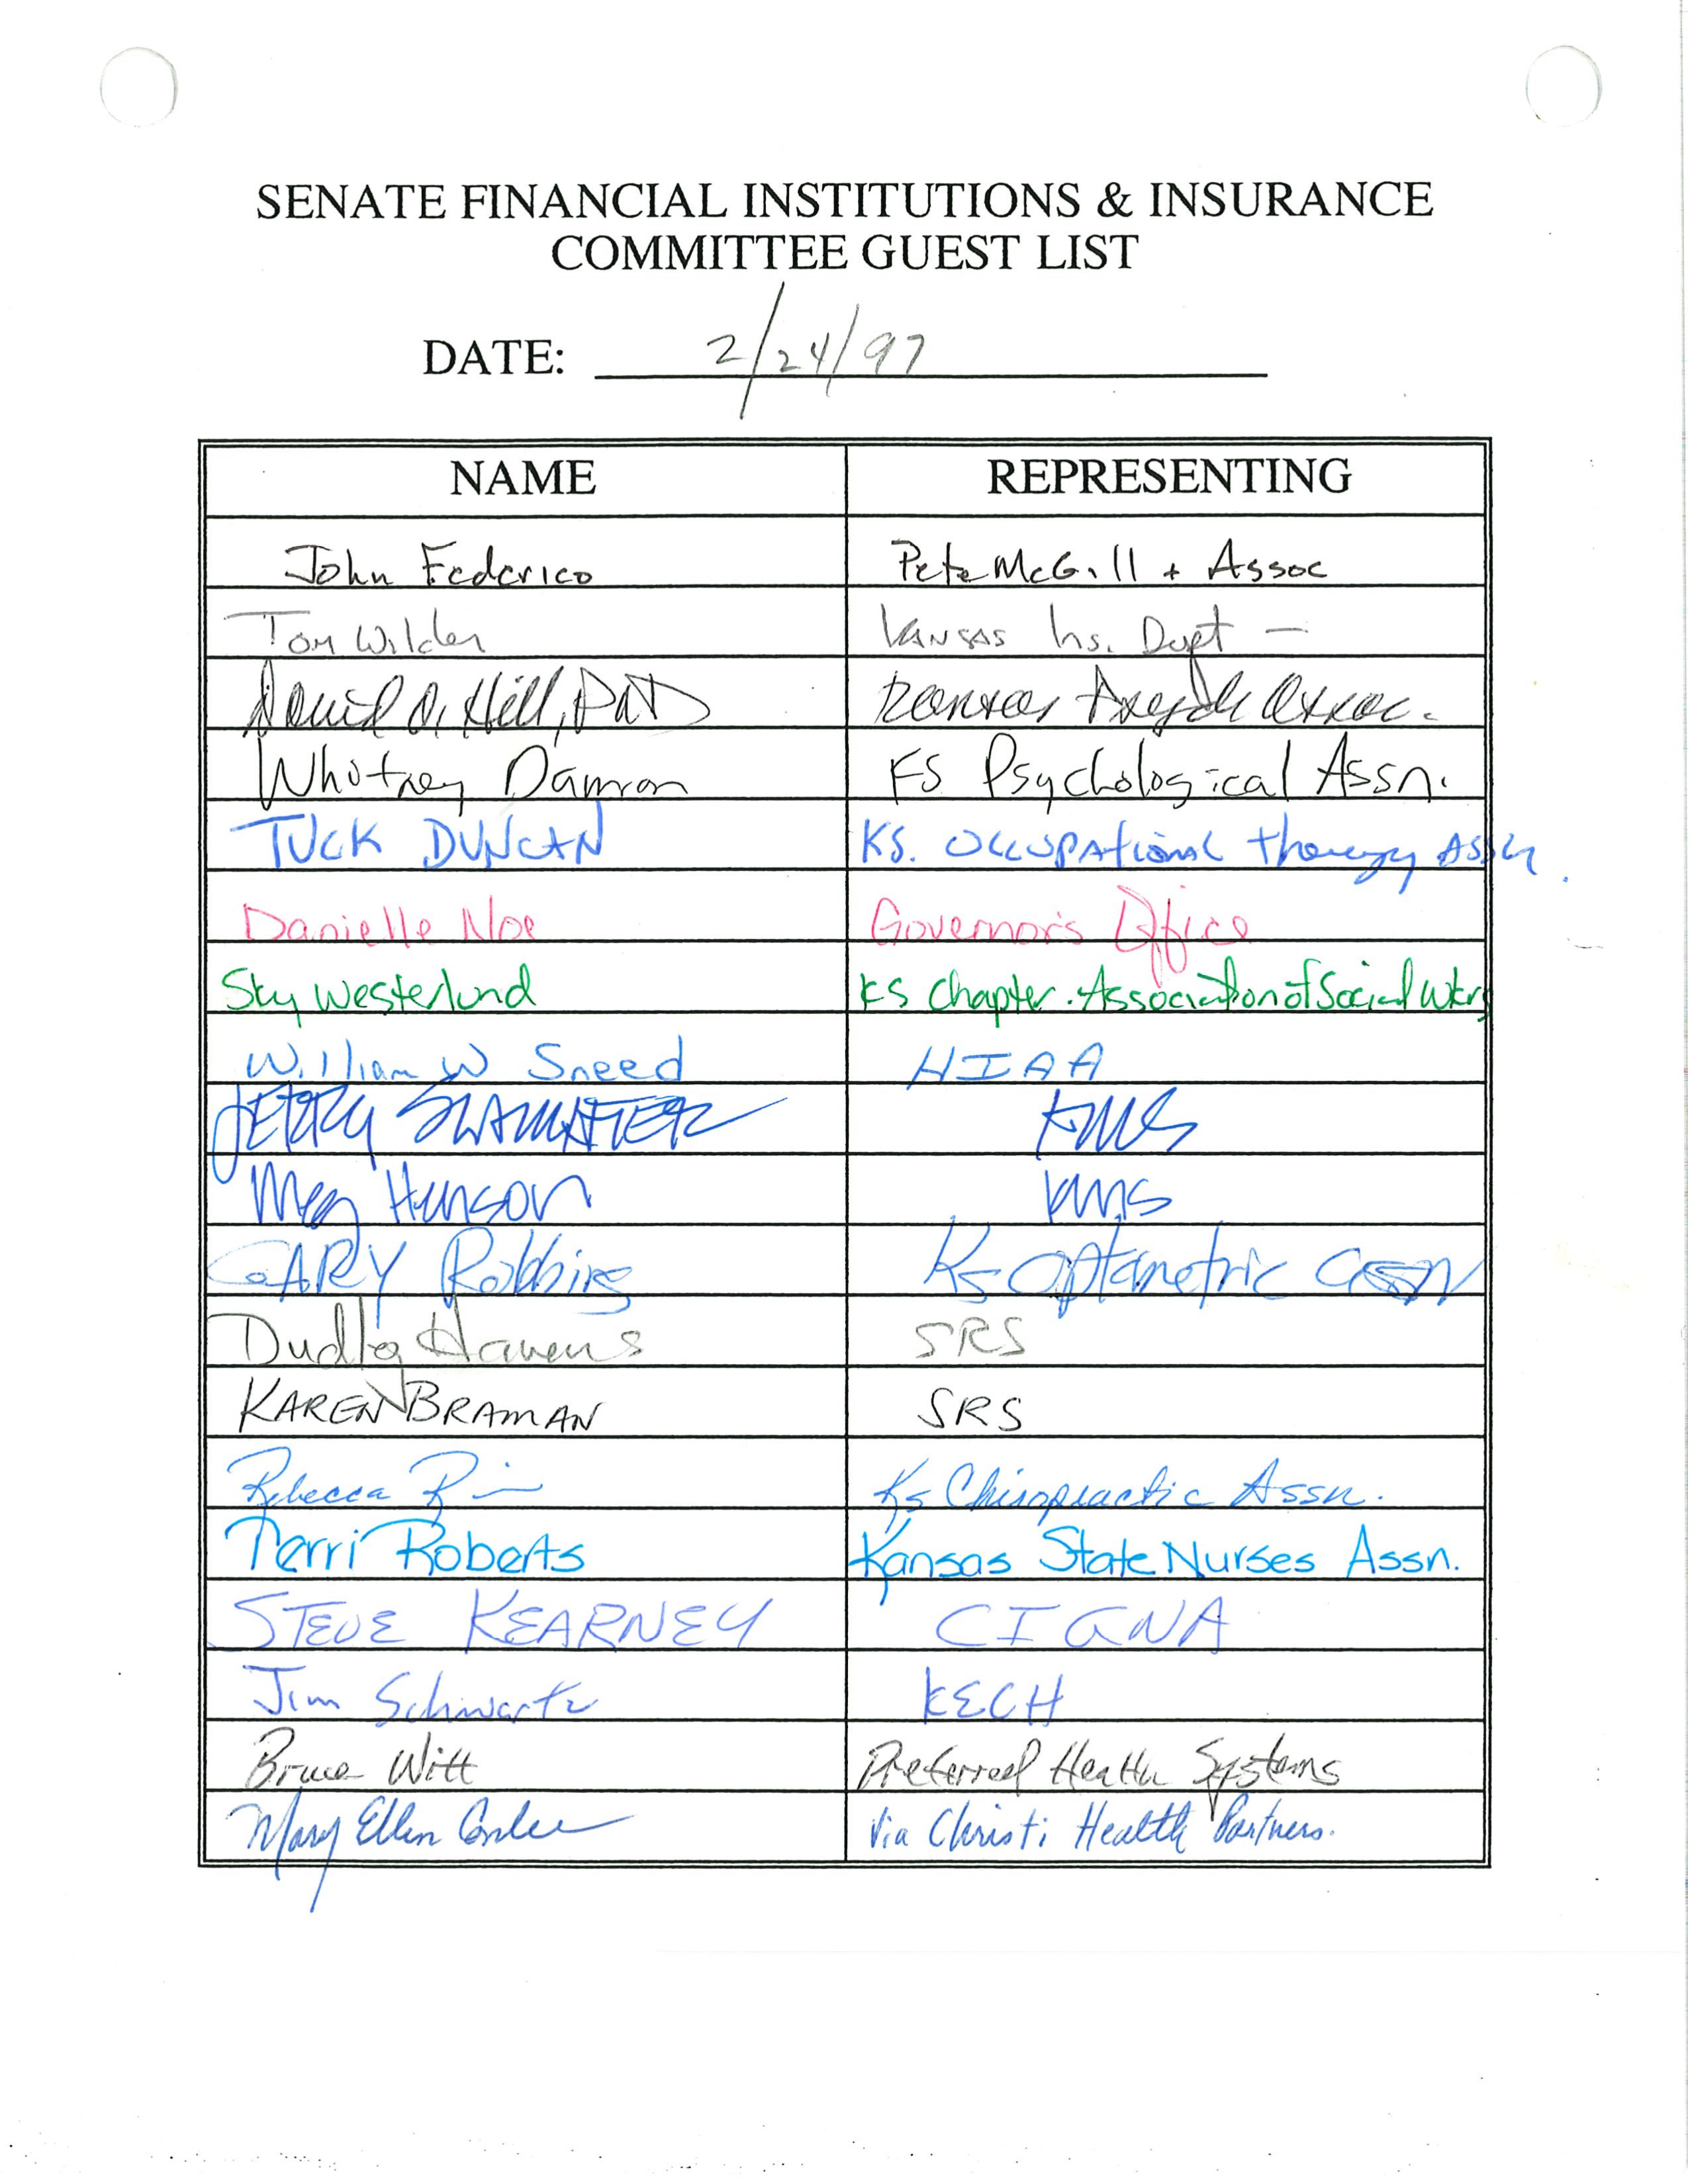 SENATE FINANCIAL INSTITUTIONS & INSURANCE
COMMITTEE GUEST LIST
DATE: 2/24/97
NAME REPRESENTING
John Federico Pete McGill + Assoc
Tom Wilder Kansas Ins. Dept —
David O. Hill, PhD Kansas Assoc.
Whitney Damron KS Psychological Assn.
TUCK DUNCAN KS. Occupational therapy Assn.
Danielle Noe Governor's Office
Sky Westerlund KS Chapter. Association of Social Wkrs
William W Sneed HIAA
JERRY SLAUGHTER KMS
Meg Henson KMS
GARY Robbins Ks Optometric assn
Dudley Havens SRS
KAREN BRAMAN SRS
Rebecca Ks Chiropractic Assn.
Terri Roberts Kansas State Nurses Assn.
STEVE KEARNEY CIGNA
Jim Schwartz KECH
Bruce Witt Preferred Health Systems
Mary Ellen Conlee Via Christi Health Partners.